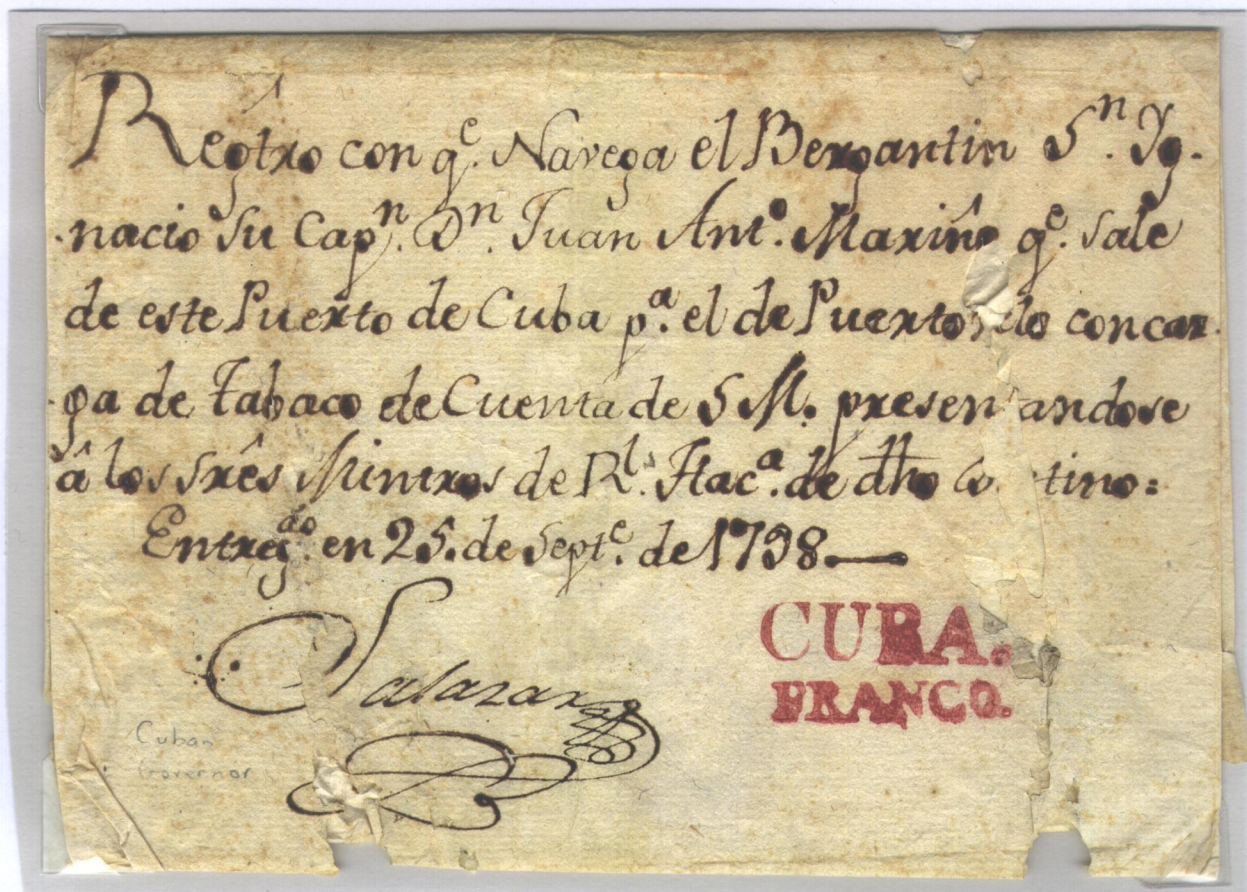 Regtro con q.e Navega el Bergantin S.n Yg-
nacio su Cap.n D.n Juan Ant.o Mariño q.e sale
de este Puerto de Cuba p.a el de Puertovelo con car-
ga de Tabaco de Cuenta de S M. presentandose
â los Srês Mintros de R.l Hac.a de dho
Entreg.do en 25. de Sept.e de 1798
Salazar
CUBA.
FRANCO.
Cuban
Governor